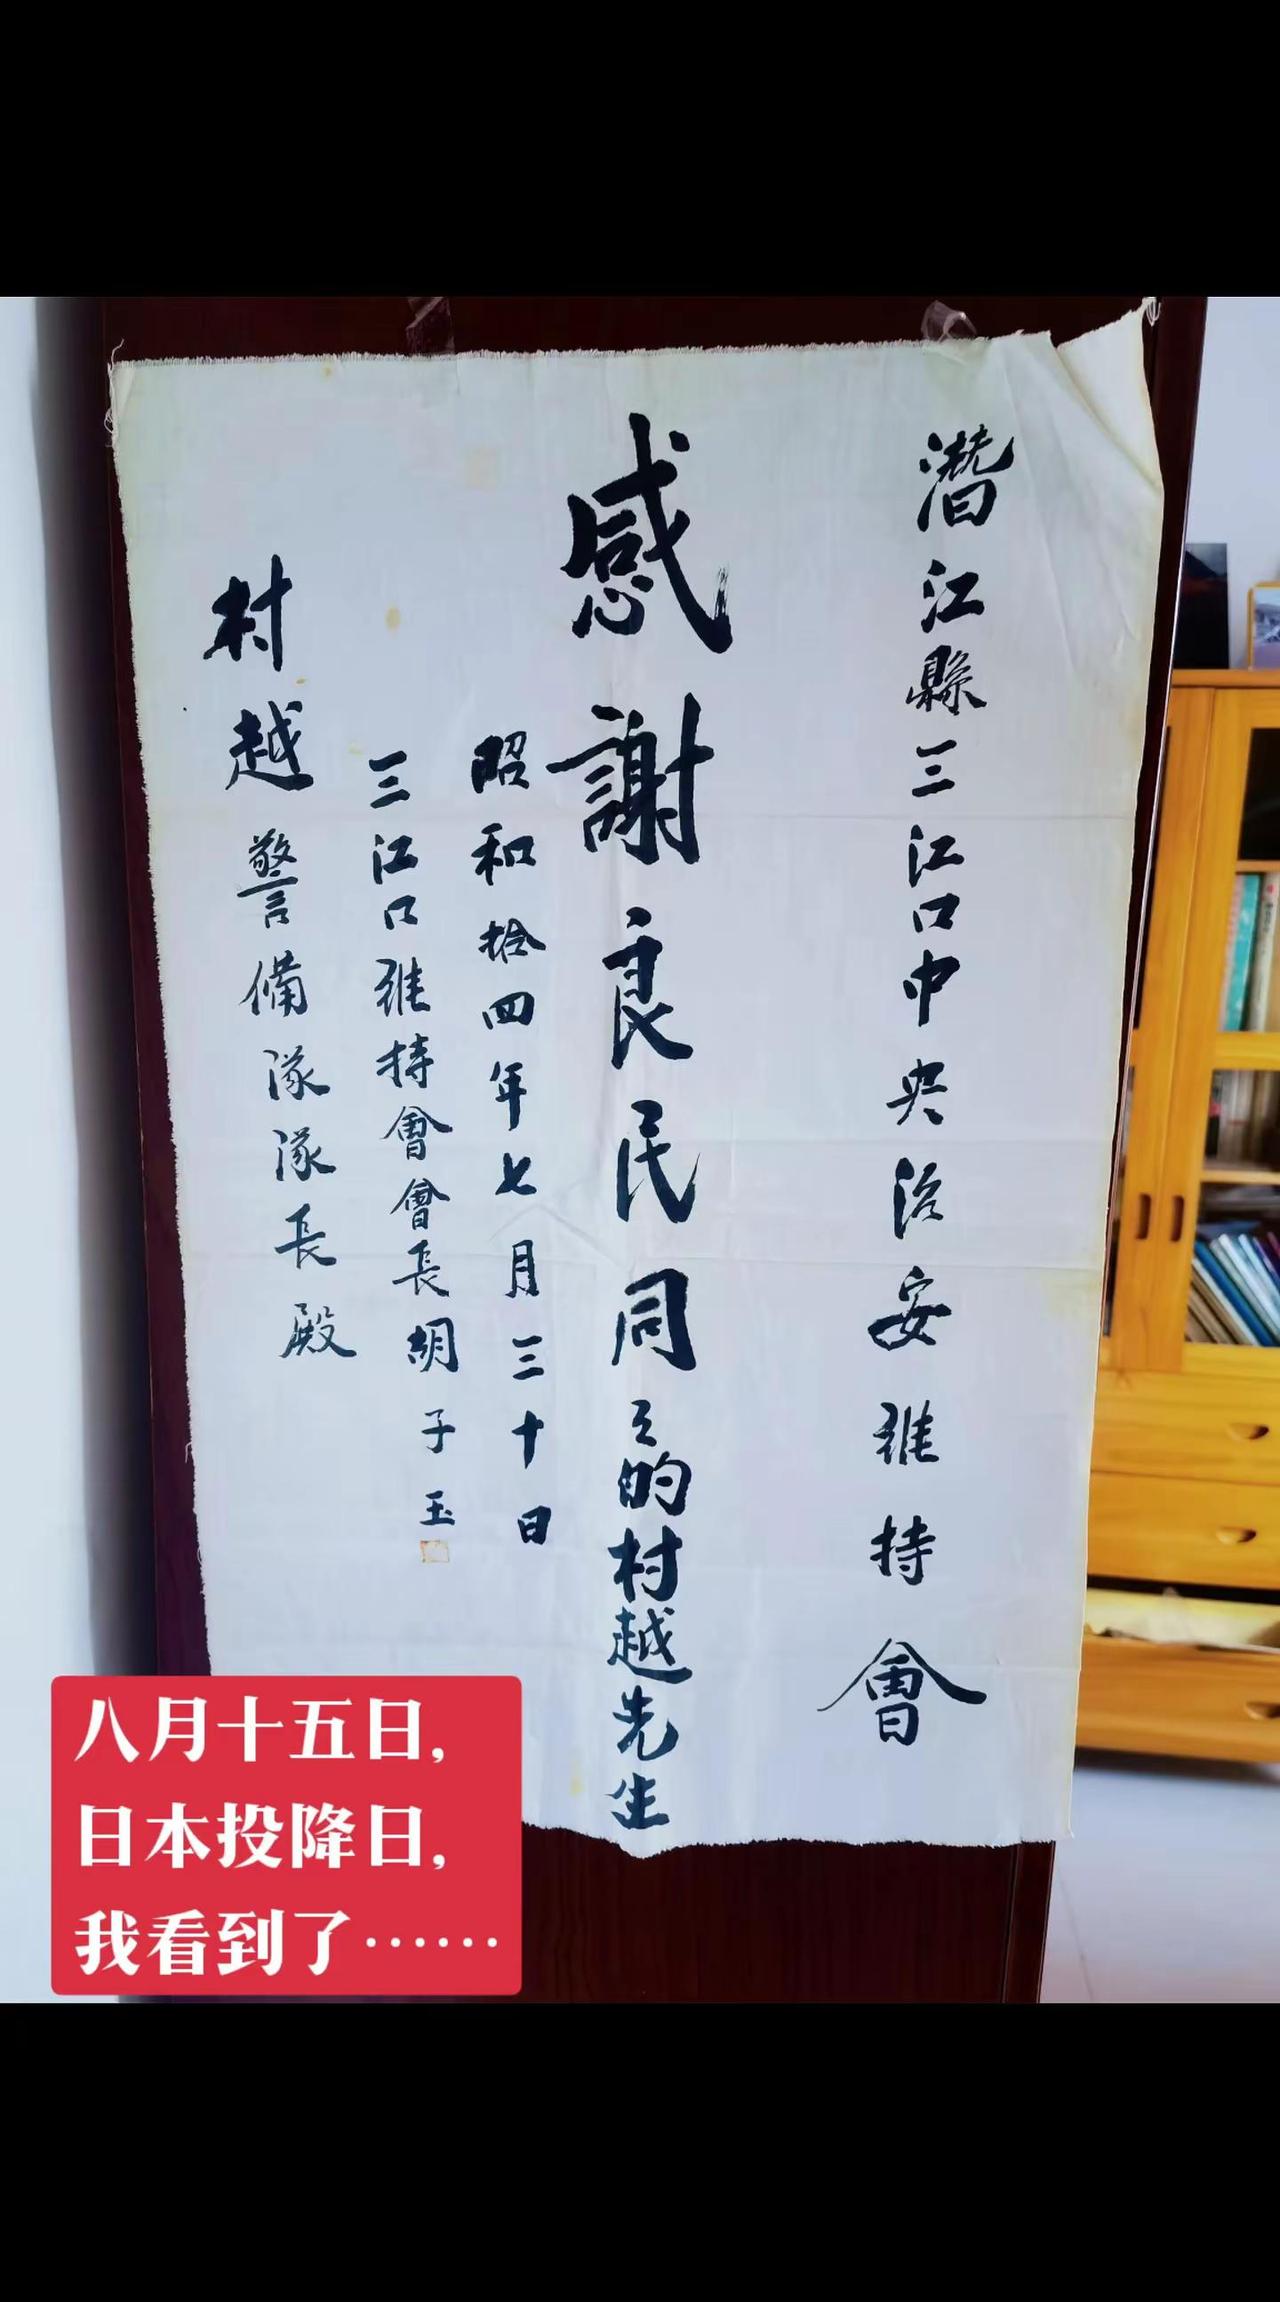 潛江縣三江口中央治安維持會
感謝良民同々的村越先生
昭和拾四年七月三十日
三江口維持會會長胡子玉
村越警備隊隊長殿
八月十五日,
日本投降日,
我看到了……